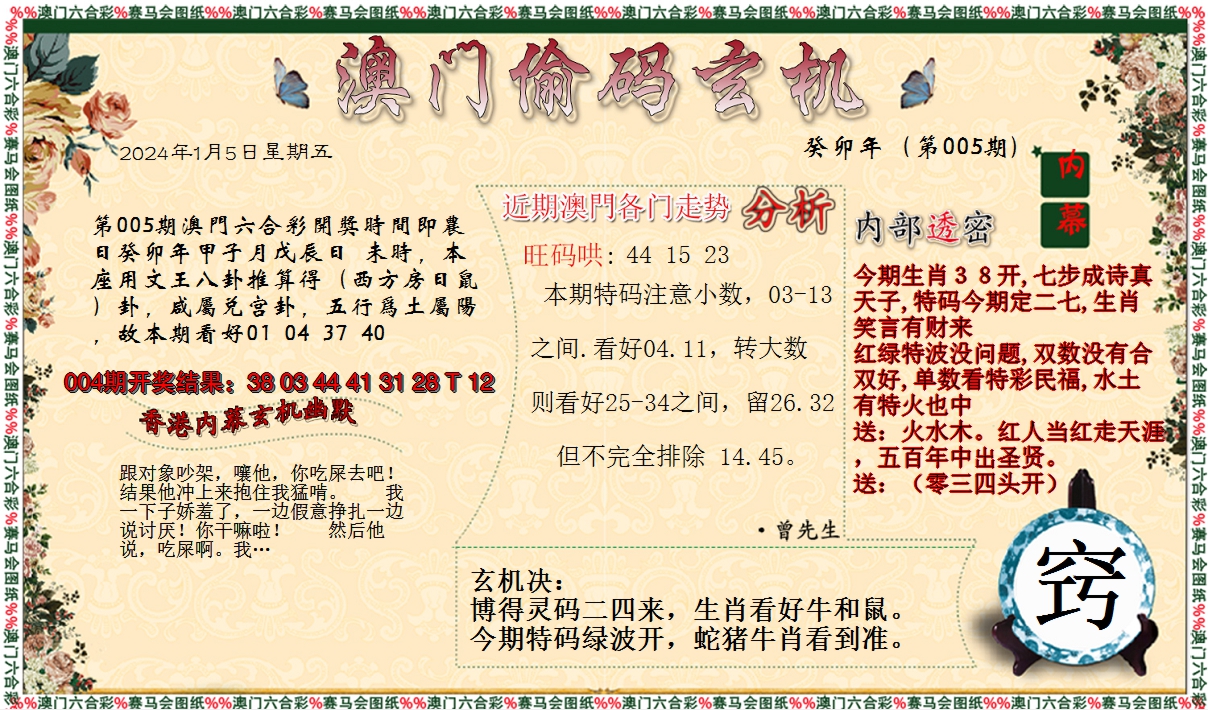 %%澳门六合彩%赛马会图纸%%澳门六合彩%赛马会图纸%%澳门六合彩%赛马会图纸%%澳门六合彩%赛马会图纸%%澳门六合彩%赛马会图纸%%澳门六合彩%赛马会图纸%%
澳门偷码玄机
2024年1月5日星期五
癸卯年（第005期）
内
幕
第005期澳門六合彩開獎時間即農
日癸卯年甲子月戊辰日 未時，本
座用文王八卦推算得（西方房日鼠
）卦，咸屬兑宫卦，五行爲土屬陽
，故本期看好01 04 37 40
004期开奖结果：38 03 44 41 31 28 T 12
香港内幕玄机幽默
跟对象吵架，嚷他，你吃屎去吧！
结果他冲上来抱住我猛啃。 我
一下子娇羞了，一边假意挣扎一边
说讨厌！你干嘛啦！ 然后他
说，吃屎啊。我…
近期澳門各门走势 分析
旺码哄: 44 15 23
本期特码注意小数，03-13
之间.看好04.11，转大数
则看好25-34之间，留26.32
但不完全排除 14.45。
·曾先生
内部透密
今期生肖３８开,七步成诗真
天子,特码今期定二七,生肖
笑言有财来
红绿特波没问题,双数没有合
双好,单数看特彩民福,水土
有特火也中
送：火水木。红人当红走天涯
，五百年中出圣贤。
送：（零三四头开）
玄机决：
博得灵码二四来，生肖看好牛和鼠。
今期特码绿波开，蛇猪牛肖看到准。
窍
%%澳门六合彩%赛马会图纸%%澳门六合彩%赛马会图纸%%澳门六合彩%赛马会图纸%%澳门六合彩%赛马会图纸%%澳门六合彩%赛马会图纸%%澳门六合彩%赛马会图纸%%